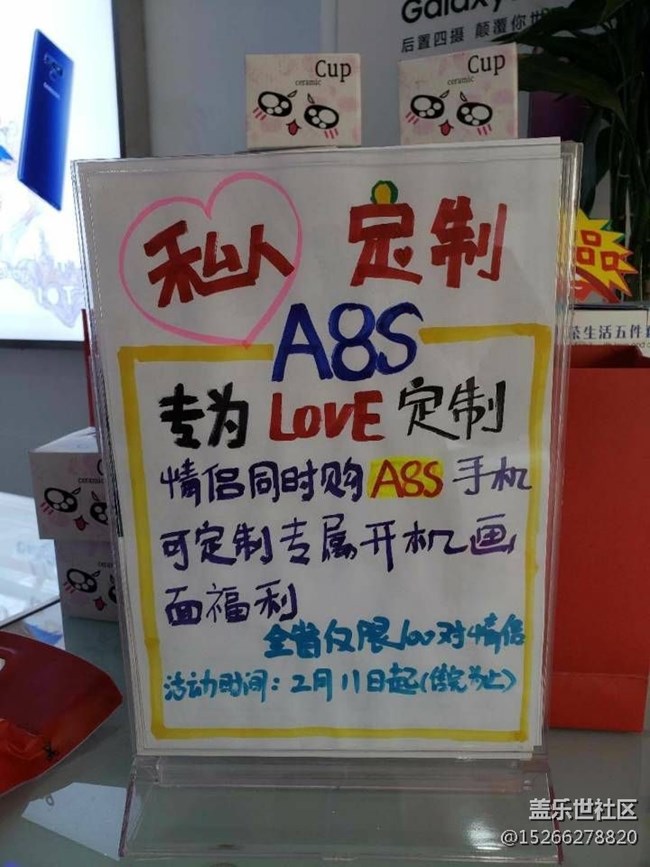 Galaxy
后置四摄 颠覆你
Cup
ceramic
Cup
ceramic
私人 定制
A8S
专为LOVE定制
情侣同时购A8S手机
可定制专属开机画
面福利
全省仅限100对情侣
活动时间：2月11日起(售完为止)
品
茶生活五件
盖乐世社区
@15266278820